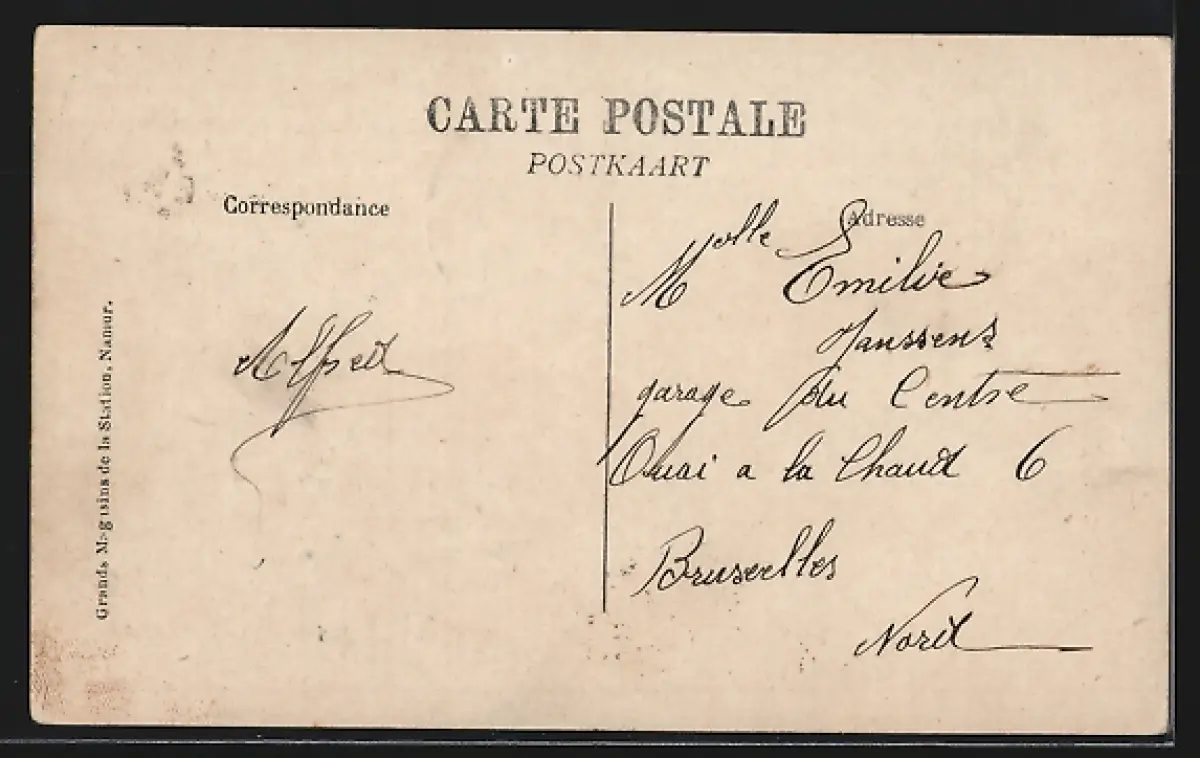 CARTE POSTALE
POSTKAART
Correspondance
Adresse
Melle Emilie
Janssens
garage du Centre
Quai a la Chaud 6
Bruxelles
Nord
Alfred
Grands Magasins de la Station, Namur.